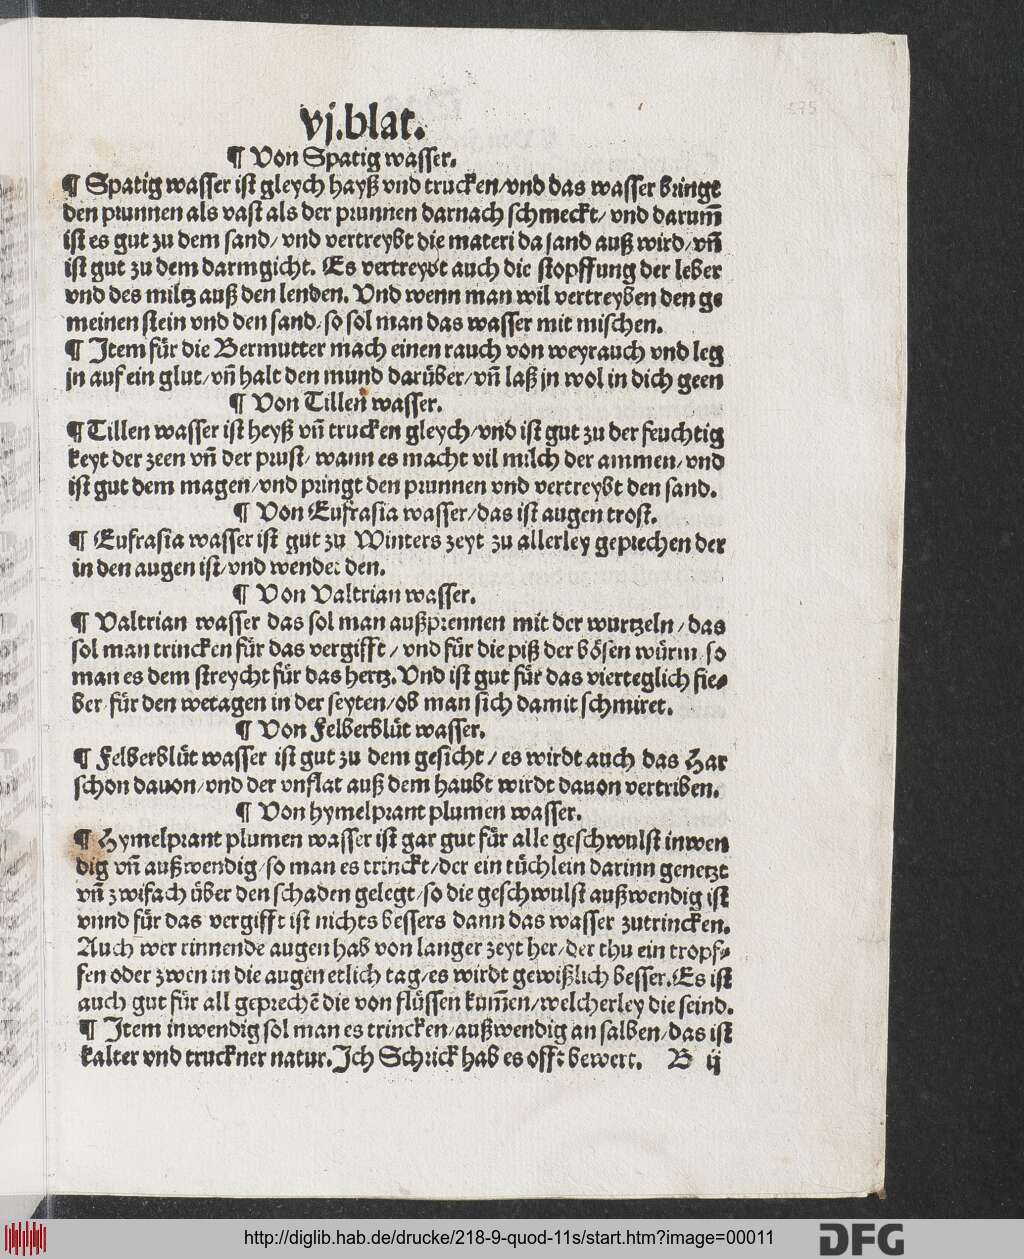 vj.blat.
¶ Von Spatig wasser.
¶ Spatig wasser ist gleych hayß vnd trucken/vnd das wasser bringt
den prunnen als vast als der prunnen darnach schmeckt/ vnd darum̄
ist es gut zu dem sand/ vnd vertreybt die materi da sand auß wird/ vn̄
ist gut zu dem darmgicht. Es vertreybt auch die stopffung der leber
vnd des miltz auß den lenden. Vnd wenn man wil vertreyben den ge
meinen stein vnd den sand/ so sol man das wasser mit mischen.
¶ Item für die Bermutter mach einen rauch von weyrauch vnd leg
jn auf ein glut/ vn̄ halt den mund darüber/ vn̄ laß jn wol in dich geen
¶ Von Tillen wasser.
¶ Tillen wasser ist heyß vn̄ trucken gleych/ vnd ist gut zu der feuchtig
keyt der zeen vn̄ der prust/ wann es macht vil milch der ammen/ vnd
ist gut dem magen/ vnd pringt den prunnen vnd vertreybt den sand.
¶ Von Eufrasia wasser/ das ist augen trost.
¶ Eufrasia wasser ist gut zu Winters zeyt zu allerley geprechen der
in den augen ist/ vnd wendet den.
¶ Von Valtrian wasser.
¶ Valtrian wasser das sol man außprennen mit der wurtzeln/ das
sol man trincken für das vergifft/ vnd für die piß der bösen würm/ so
man es dem streycht für das hertz. Vnd ist gut für das vierteglich fie⸗
ber für den wetagen in der seyten/ ob man sich damit schmiret.
¶ Von Felberblüt wasser.
¶ Felberblüt wasser ist gut zu dem gesicht/ es wirdt auch das Har
schon dauon/ vnd der vnflat auß dem haubt wirdt dauon vertriben.
¶ Von hymelprant plumen wasser.
¶ Hymelprant plumen wasser ist gar gut für alle geschwulst inwen
dig vn̄ außwendig/ so man es trinckt/ der ein tüchlein darinn genetzt
vn̄ zwifach über den schaden gelegt/ so die geschwulst außwendig ist
vnnd für das vergifft ist nichts bessers dann das wasser zutrincken.
Auch wer rinnende augen hab von langer zeyt her/ der thu ein tropf⸗
fen oder zwen in die augen etlich tag/ es wirdt gewißlich besser. Es ist
auch gut für all geprechē die von flüssen kum̄en/ welcherley die seind.
¶ Item inwendig sol man es trincken/ außwendig an salben/ das ist
kalter vnd truckner natur. Ich Schrick hab es offt bewert. B ij
http://diglib.hab.de/drucke/218-9-quod-11s/start.htm?image=00011
DFG